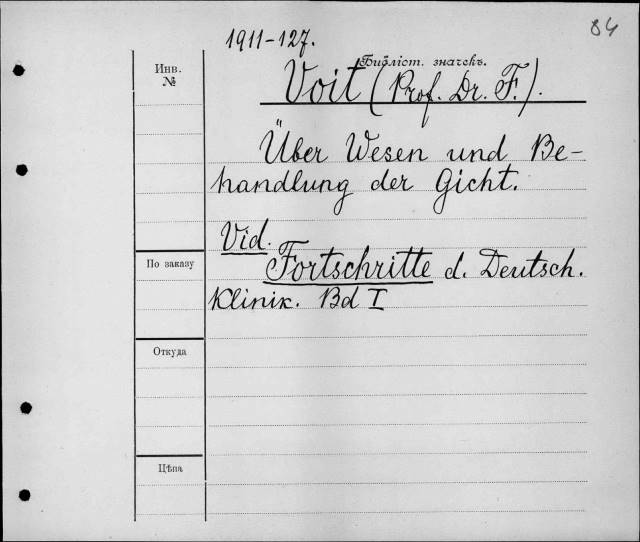 84
1911-127.
Инв.
№
Библіот. значекъ.
Voit (Prof. Dr. F.).
Über Wesen und Be-
handlung der Gicht.
Vid.
По заказу
Fortschritte d. Deutsch.
Klinik. Bd I
Откуда
Цѣна